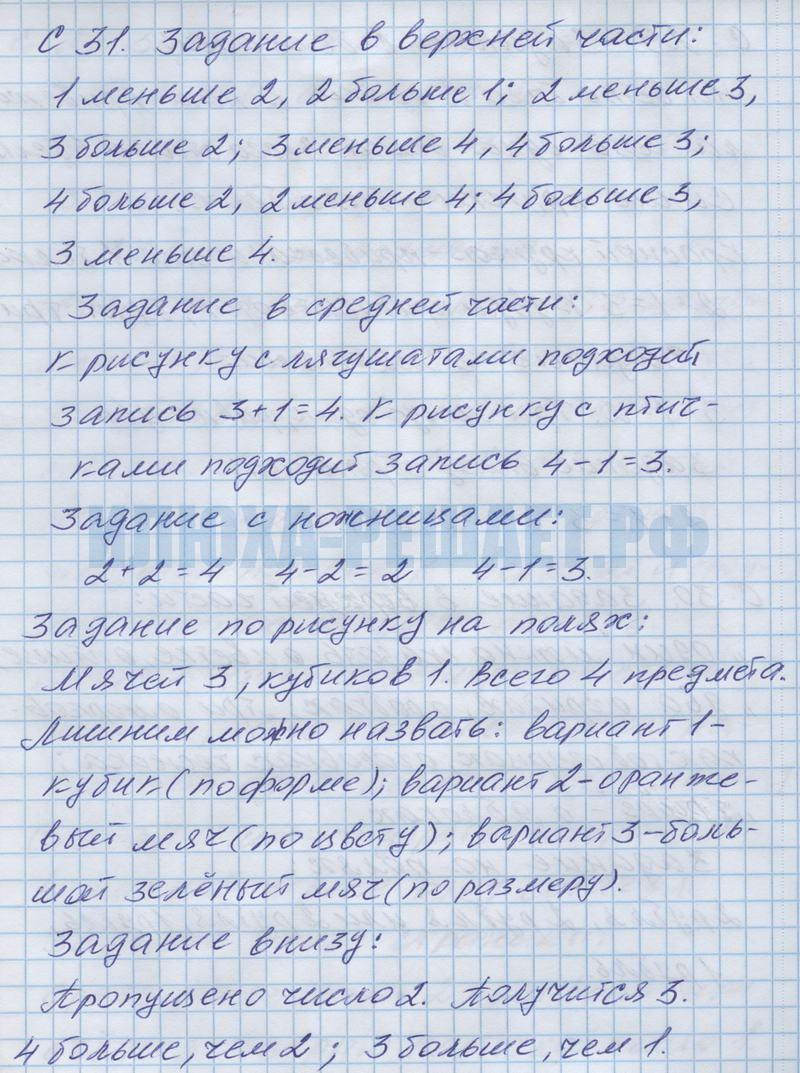 С 31. Задание в верхней части:
1 меньше 2, 2 больше 1; 2 меньше 3,
3 больше 2; 3 меньше 4, 4 больше 3;
4 больше 2, 2 меньше 4; 4 больше 3,
3 меньше 4.
Задание в средней части:
К рисунку с лягушатами подходит
запись 3+1=4. К рисунку с птич-
ками подходит запись 4-1=3.
Задание с ножницами:
ВПЮХА-РЕШАЕТ.РФ
2+2=4 4-2=2 4-1=3.
Задание по рисунку на полях:
Мячей 3, кубиков 1. Всего 4 предмета.
Лишним можно назвать: вариант 1-
кубик (по форме); вариант 2-оранже-
вый мяч (по цвету); вариант 3-боль-
шой зелёный мяч (по размеру).
Задание внизу:
Пропущено число 2. Получится 3.
4 больше, чем 2; 3 больше, чем 1.